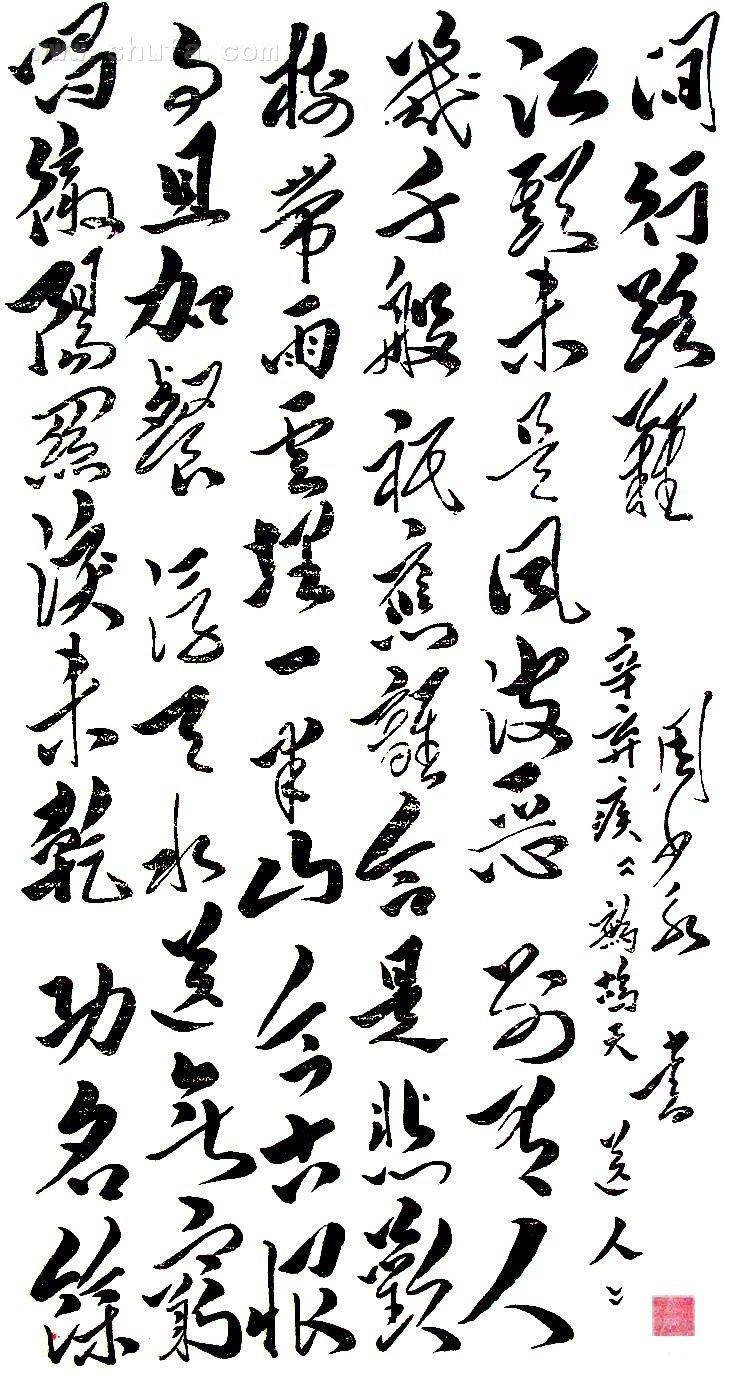 唱徹陽關淚未乾 功名餘
事且加餐 浮天水送無窮
樹帶雨雲埋一半山 今古恨
幾千般 祇應離合是悲歡
江頭未是風波惡 別有人
間行路難
辛棄疾《鷓鴣天 送人》
周少 書
shufa.com